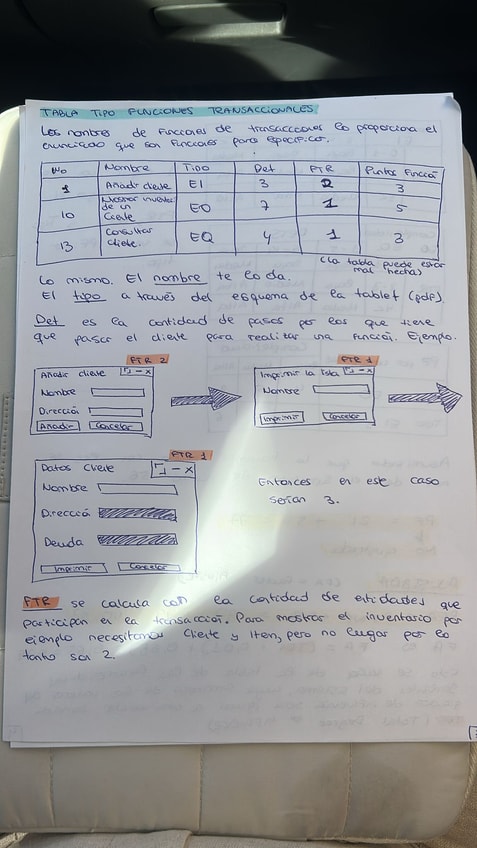 TABLA TIPO FUNCIONES TRANSACCIONALES
Los nombres de funciones de transacciones lo proporciona el
enunciado que son funciones para especificar.
No Nombre Tipo Det FTR Puntos Función
1 Añadir cliente EI 3 2 3
10 Mostrar inventario de un cliente EO 7 1 5
13 Consultar cliente. EQ 4 1 3
(la tabla puede estar
mal hecha)
Lo mismo. El nombre te lo da.
El tipo a través del esquema de la tablet (pdf).
Det es la cantidad de pasos por los que tiene
que pasar el cliente para realizar una función. Ejemplo.
FTR 2
Añadir cliente - x
Nombre
Dirección
Añadir Cancelar
FTR 1
Imprimir la lista - x
Nombre
Imprimir Cancelar
FTR 1
Datos cliente - x
Nombre
Dirección
Deuda
Imprimir Cancelar
Entonces en este caso
serían 3.
FTR se calcula con la cantidad de entidades que
participan en la transacción. Para mostrar el inventario por
ejemplo necesitamos Cliente y Item, pero no lugar por lo
tanto son 2.